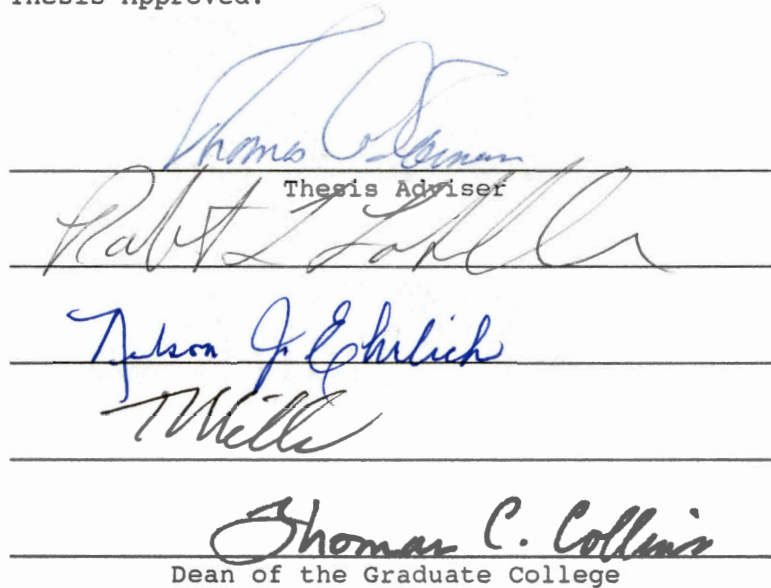 Thesis Approved:
Thomas
Thesis Adviser
Robert L
Nelson J. Ehrlich
Thomas C. Collins
Dean of the Graduate College